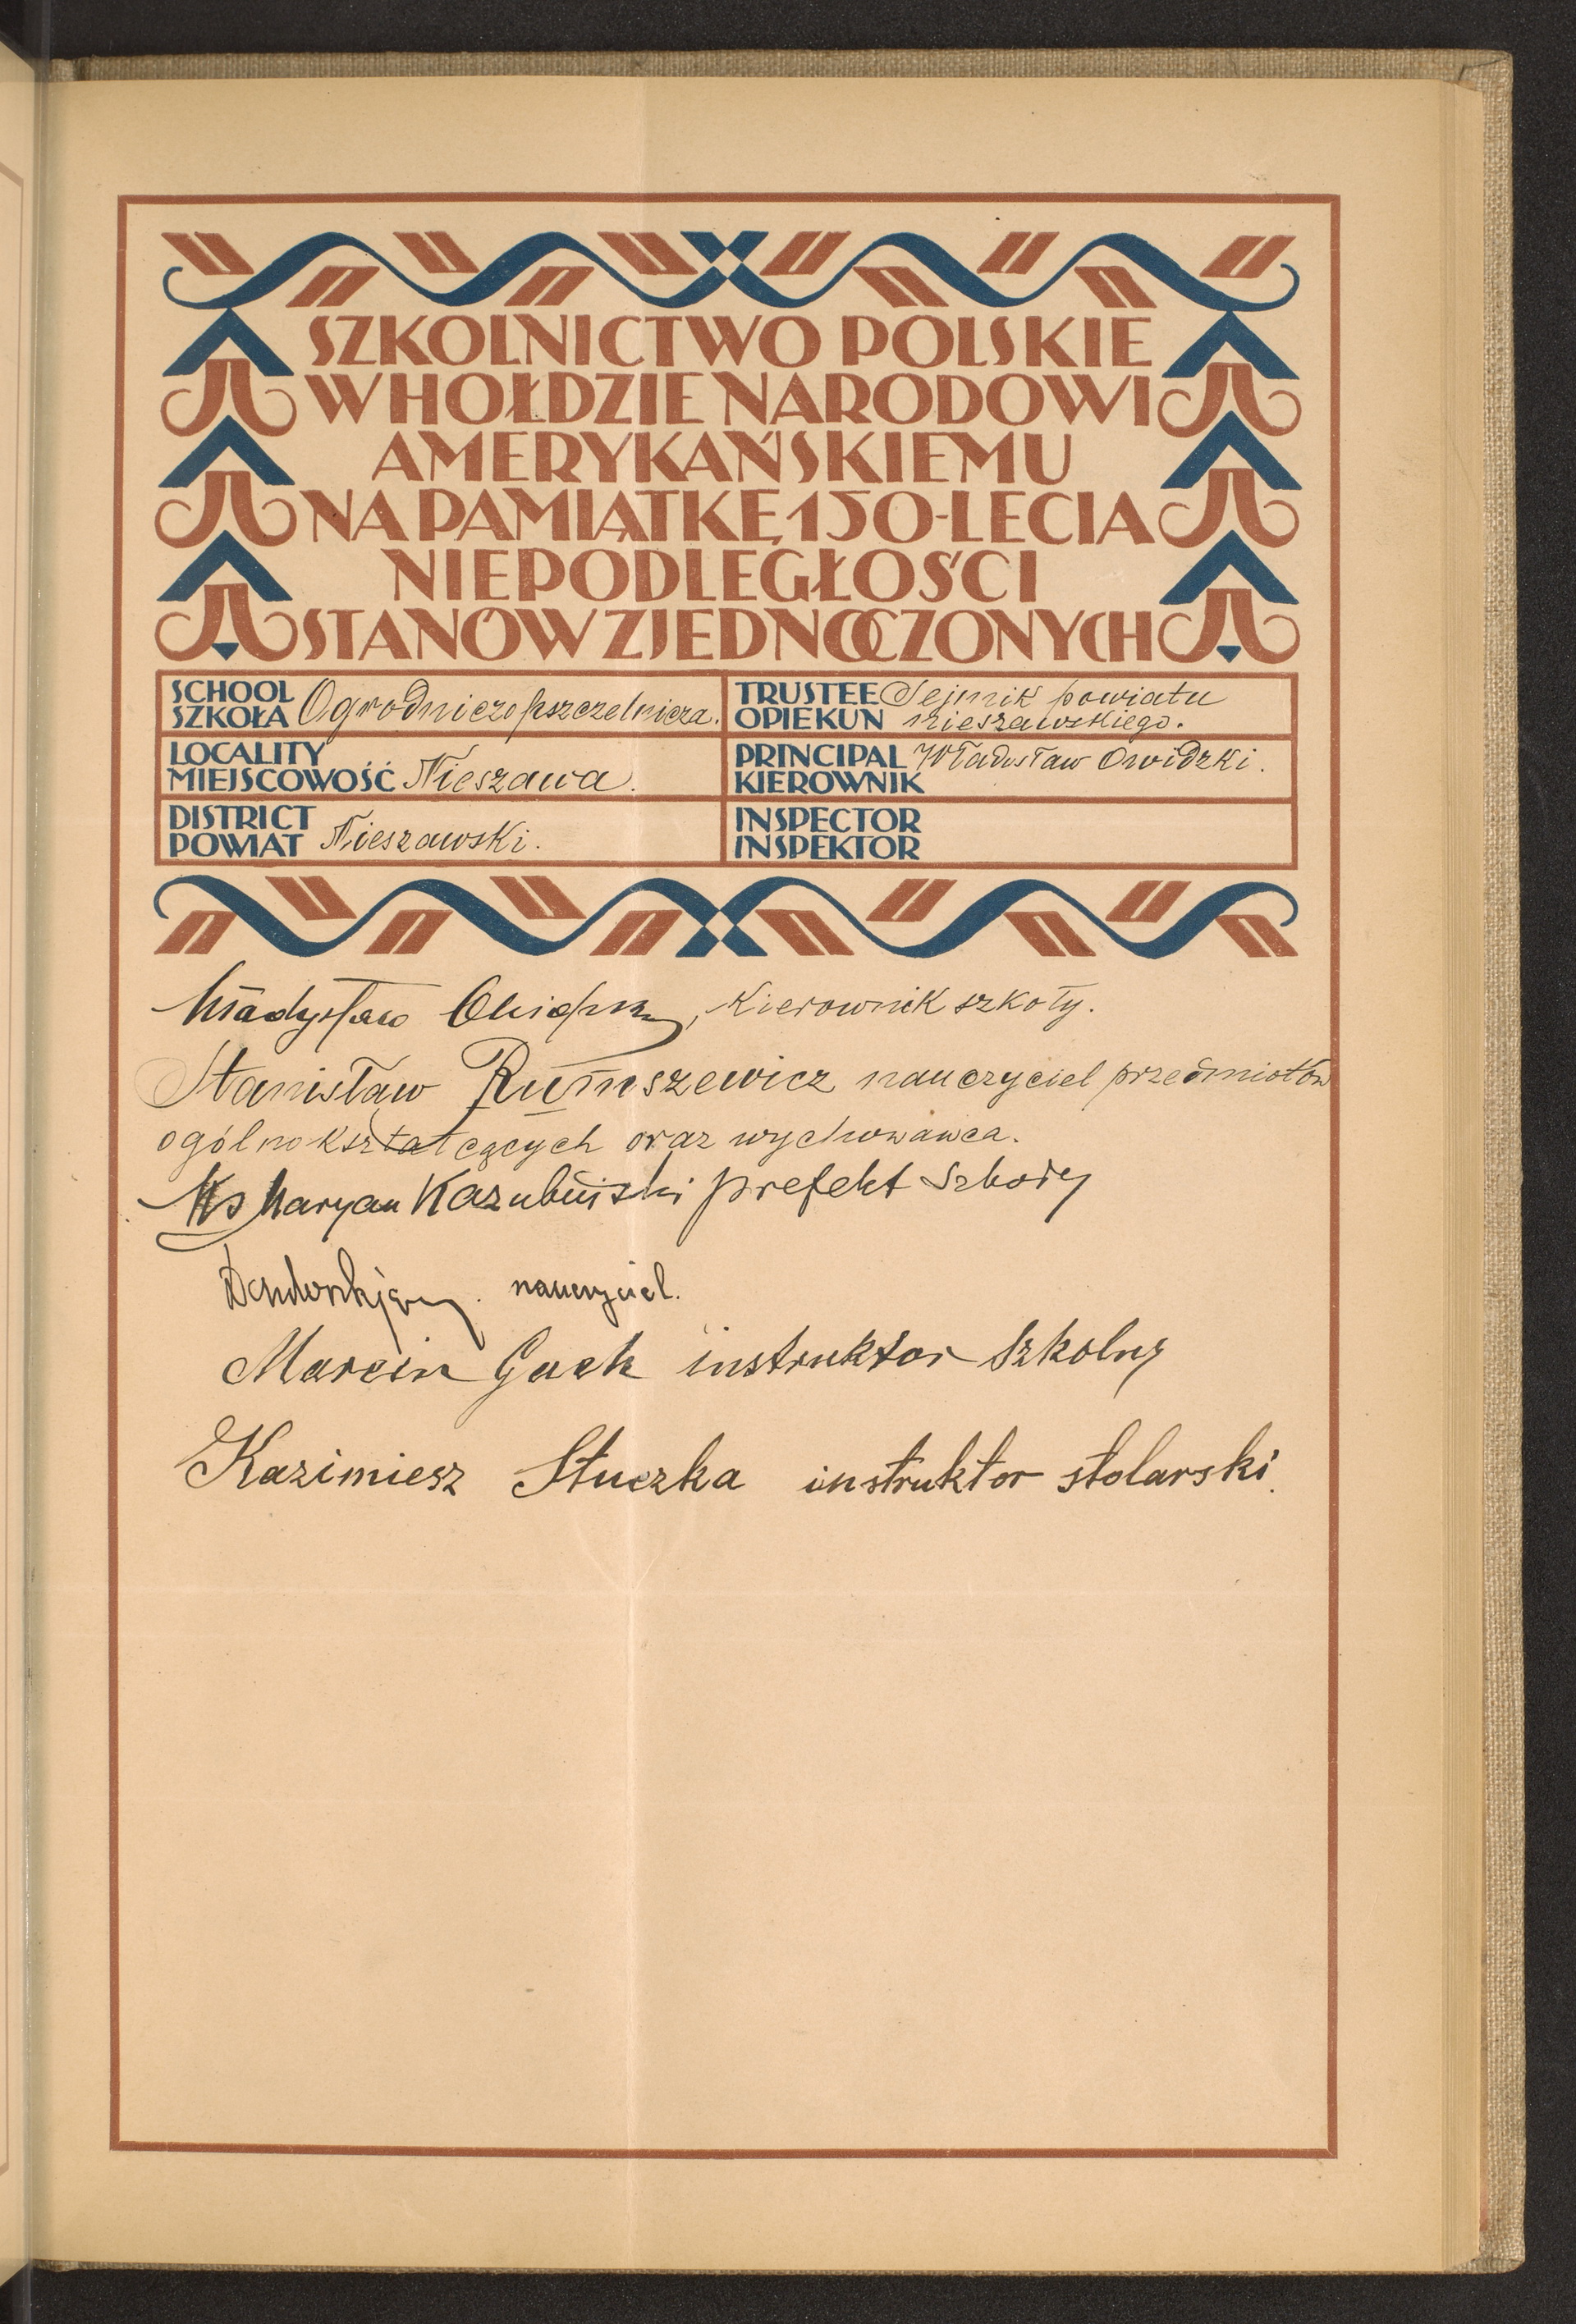 SZKOLNICTWO POLSKIE
W HOŁDZIE NARODOWI
AMERYKAŃSKIEMU
NA PAMIĄTKĘ 150-LECIA
NIEPODLEGŁOŚCI
STANÓW ZJEDNOCZONYCH
SCHOOL
SZKOŁA Ogrodniczo pszczelnicza.
TRUSTEE Sejmik powiatu
OPIEKUN nieszawskiego.
LOCALITY
MIEJSCOWOŚĆ Nieszawa.
PRINCIPAL Władysław Owidzki.
KIEROWNIK
DISTRICT
POWIAT Nieszawski.
INSPECTOR
INSPEKTOR
Władysław Owidzki, Kierownik szkoły.
Stanisław Rumszewicz nauczyciel przedmiotów
ogólnokształcących oraz wychowawca.
Ks Maryan Kazubiński prefekt Szkoły
nauczyciel.
Marcin Gack instruktor Szkolny
Kazimiesz Stuczka instruktor stolarski.